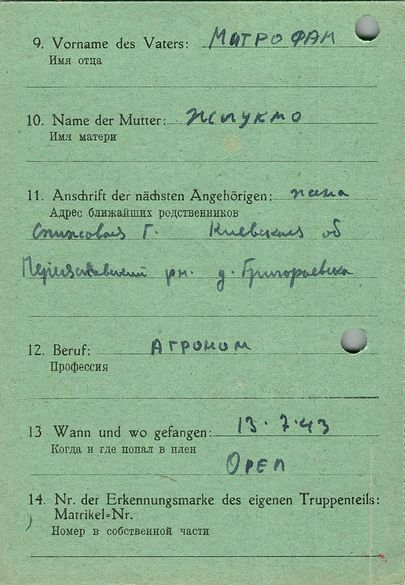 9. Vorname des Vaters: Митрофан
Имя отца
10. Name der Mutter: Жлукто
Имя матери
11. Anschrift der nächsten Angehörigen: жена
Адрес ближайших родственников
Г. Киевская об
рн. д. Григоровка
12. Beruf: Агроном
Профессия
13 Wann und wo gefangen: 13.7.43
Когда и где попал в плен
Орел
14. Nr. der Erkennungsmarke des eigenen Truppenteils:
Matrikel=Nr.
Номер в собственной части